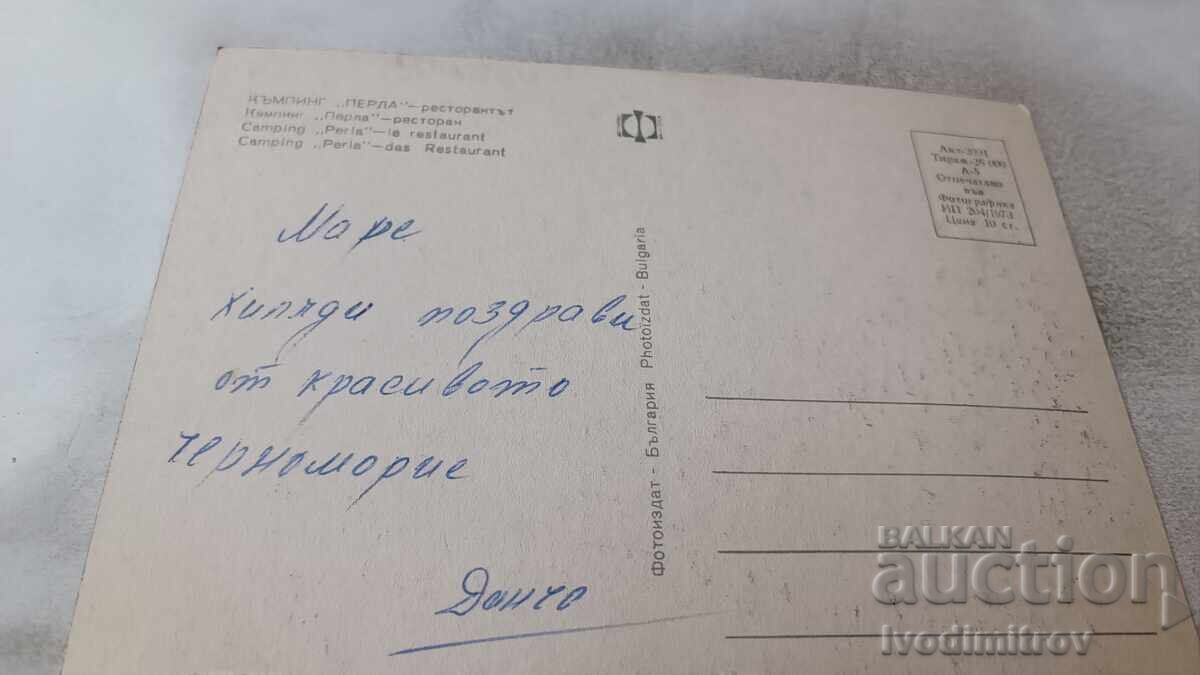 КЪМПИНГ „ПЕРЛА"—ресторантът
Кемпинг „Перла"—ресторан
Camping „Perla"—le restaurant
Camping „Perla"—das Restaurant
Маре
Хиляди поздрави
от красивото
Черноморие
Дончо
Фотоиздат - България Photoizdat - Bulgaria
Акт-2001
Тираж-26 000
А-5
Отпечатано
във
Фотографика
ИП 204/1973
Цена 10 ст.
BALKAN
auction
Ivodimitrov